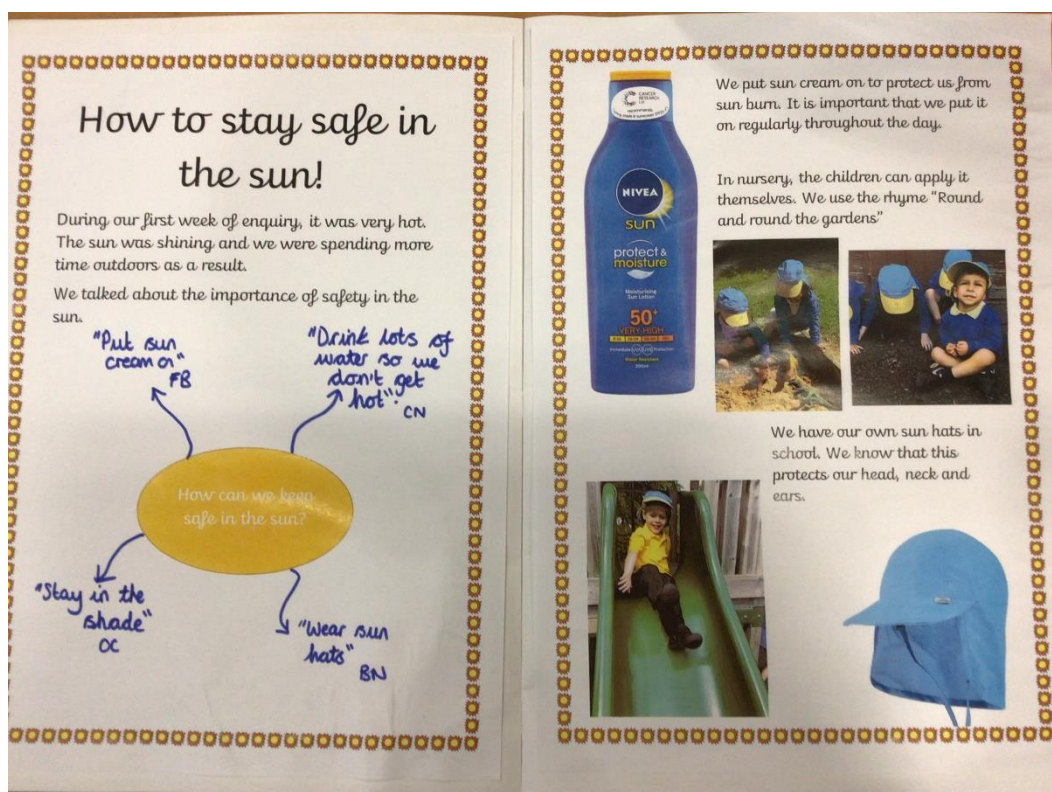 How to stay safe in
the sun!
During our first week of enquiry, it was very hot.
The sun was shining and we were spending more
time outdoors as a result.
We talked about the importance of safety in the
sun.
"Put sun
cream on"
FB
"Drink lots of
water so we
don't get
hot".
CN
How can we keep
safe in the sun?
"Stay in the
shade"
OC
"Wear sun
hats"
BN
CANCER
RESEARCH
UK
NIVEA
sun
protect &
moisture
Moisturising
Sun Lotion
50+
VERY HIGH
Water Resistant
We put sun cream on to protect us from
sun burn. It is important that we put it
on regularly throughout the day.
In nursery, the children can apply it
themselves. We use the rhyme "Round
and round the gardens"
We have our own sun hats in
school. We know that this
protects our head, neck and
ears.